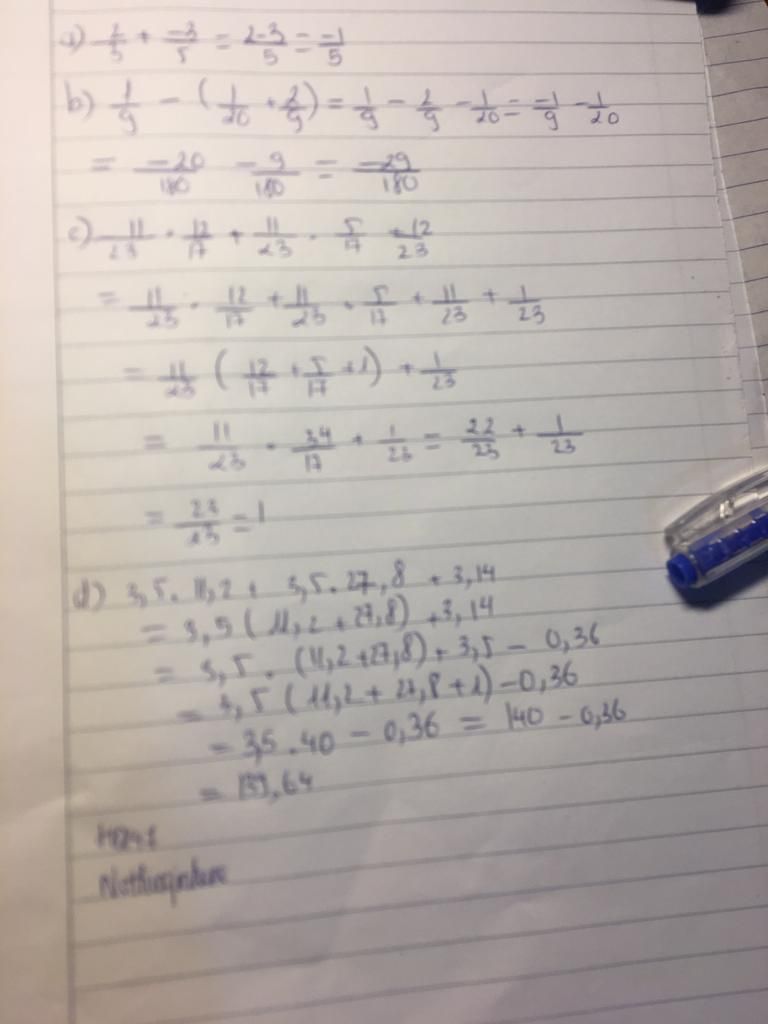 a) 2/5 + -3/5 = 2-3/5 = -1/5
b) 1/9 - (1/20 + 2/9) = 1/9 - 2/9 - 1/20 = -1/9 - 1/20
= -20/180 - 9/180 = -29/180
c) 11/23 . 12/17 + 11/23 . 5/17 + 12/23
= 11/23 . 12/17 + 11/23 . 5/17 + 11/23 + 1/23
= 11/23 (12/17 + 5/17 + 1) + 1/23
= 11/23 . 34/17 + 1/23 = 22/23 + 1/23
= 23/23 = 1
d) 3,5 . 11,2 + 3,5 . 27,8 + 3,14
= 3,5 (11,2 + 27,8) + 3,14
= 3,5 . (11,2 + 27,8) + 3,5 - 0,36
= 3,5 (11,2 + 27,8 + 1) - 0,36
= 3,5 . 40 - 0,36 = 140 - 0,36
= 139,64